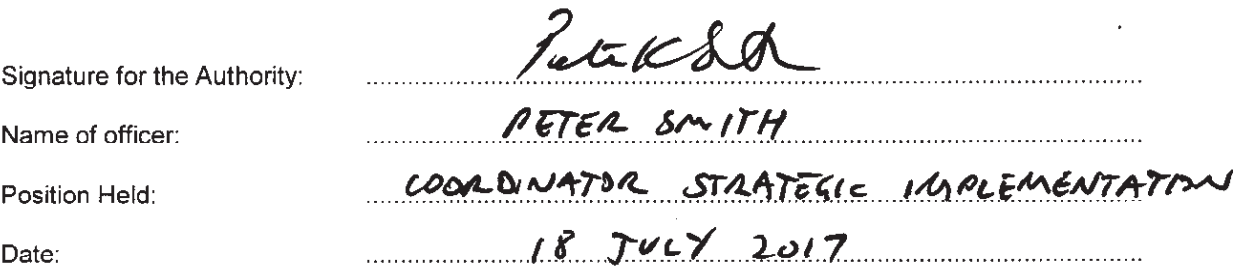 Signature for the Authority:
Name of officer: PETER SMITH
Position Held: COORDINATOR STRATEGIC IMPLEMENTATION
Date: 18 JULY 2017